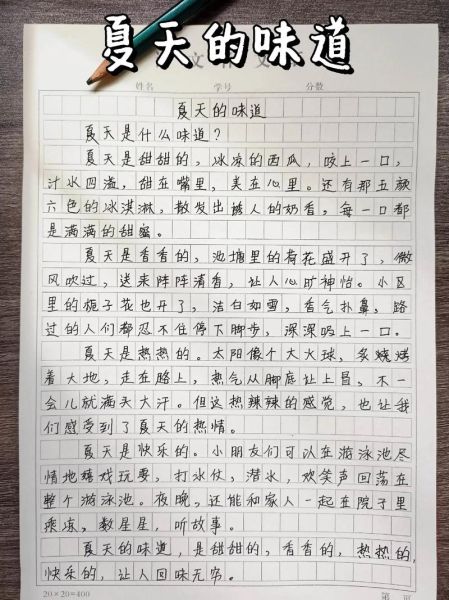 夏天的味道
姓名 学号 分数
夏天的味道
夏天是什么味道？
夏天是甜甜的，冰凉的西瓜，咬上一口，
汁水四溢，甜在嘴里，美在心里。还有那五颜
六色的冰淇淋，散发出诱人的奶香，每一口都
是满满的甜蜜。
夏天是香香的，池塘里的荷花盛开了，微
风吹过，送来阵阵清香，让人心旷神怡。小区
里的栀子花也开了，洁白如雪，香气扑鼻，路
过的人们都忍不住停下脚步，深深吸上一口。
夏天是热热的。太阳像个大火球，炙烧烤
着大地，走在路上，热气从脚底往上冒，不一
会儿就满头大汗。但这热辣辣的感觉，也让我
们感受到了夏天的热情。
夏天是快乐的。小朋友们可以在游泳池尽
情地嬉戏玩耍，打水仗，潜水，欢笑声回荡在
整个游泳池。夜晚，还能和家人一起在院子里
乘凉，数星星，听故事。
夏天的味道，是甜甜的，香香的，热热的，
快乐的，让人回味无穷。
20×20=400 第 页